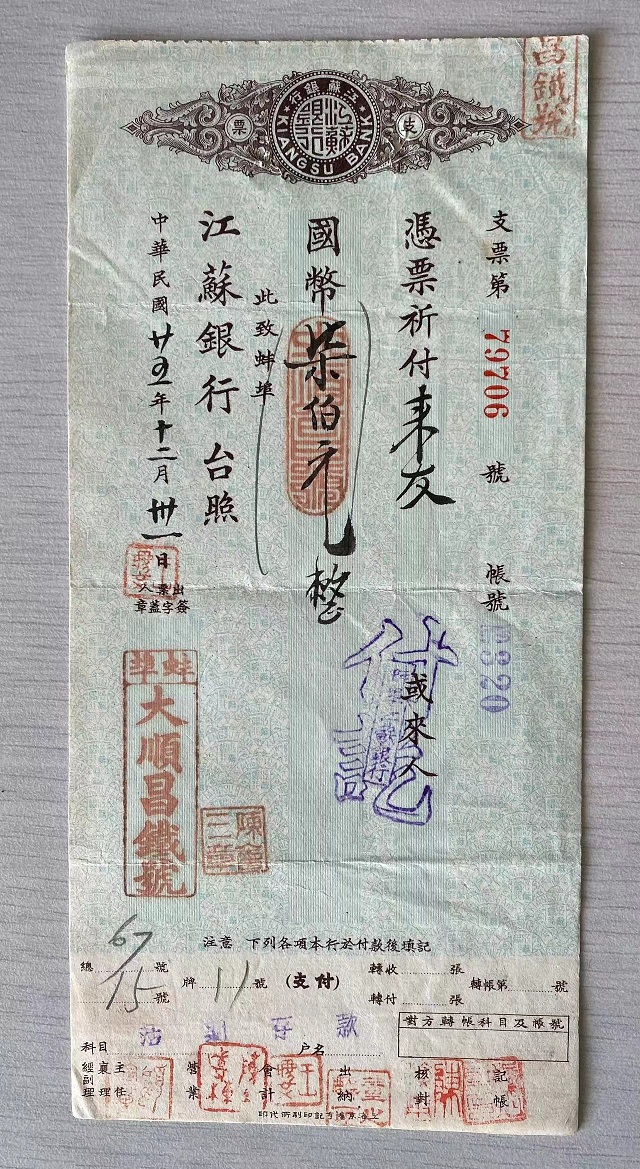 江蘇銀行
江蘇銀行
KIANGSU BANK
支票
昌鐵號
支票第 79706 號
帳號 320
憑票祈付來友或來人
國幣柒伯元整
付訖
此致蚌埠
江蘇銀行台照
中華民國廿五年十二月卅一日
出票人
簽字蓋章
蚌埠
大順昌鐵號
注意 下列各項本行於付款後填記
總 67 號
15 號
牌 11 號
(支付)
轉收 張
轉付 張
轉帳第 號
對方轉帳科目及帳號
科目 存款
户名
經副襄主
理理任
營業
會計
出納
核對
記帳